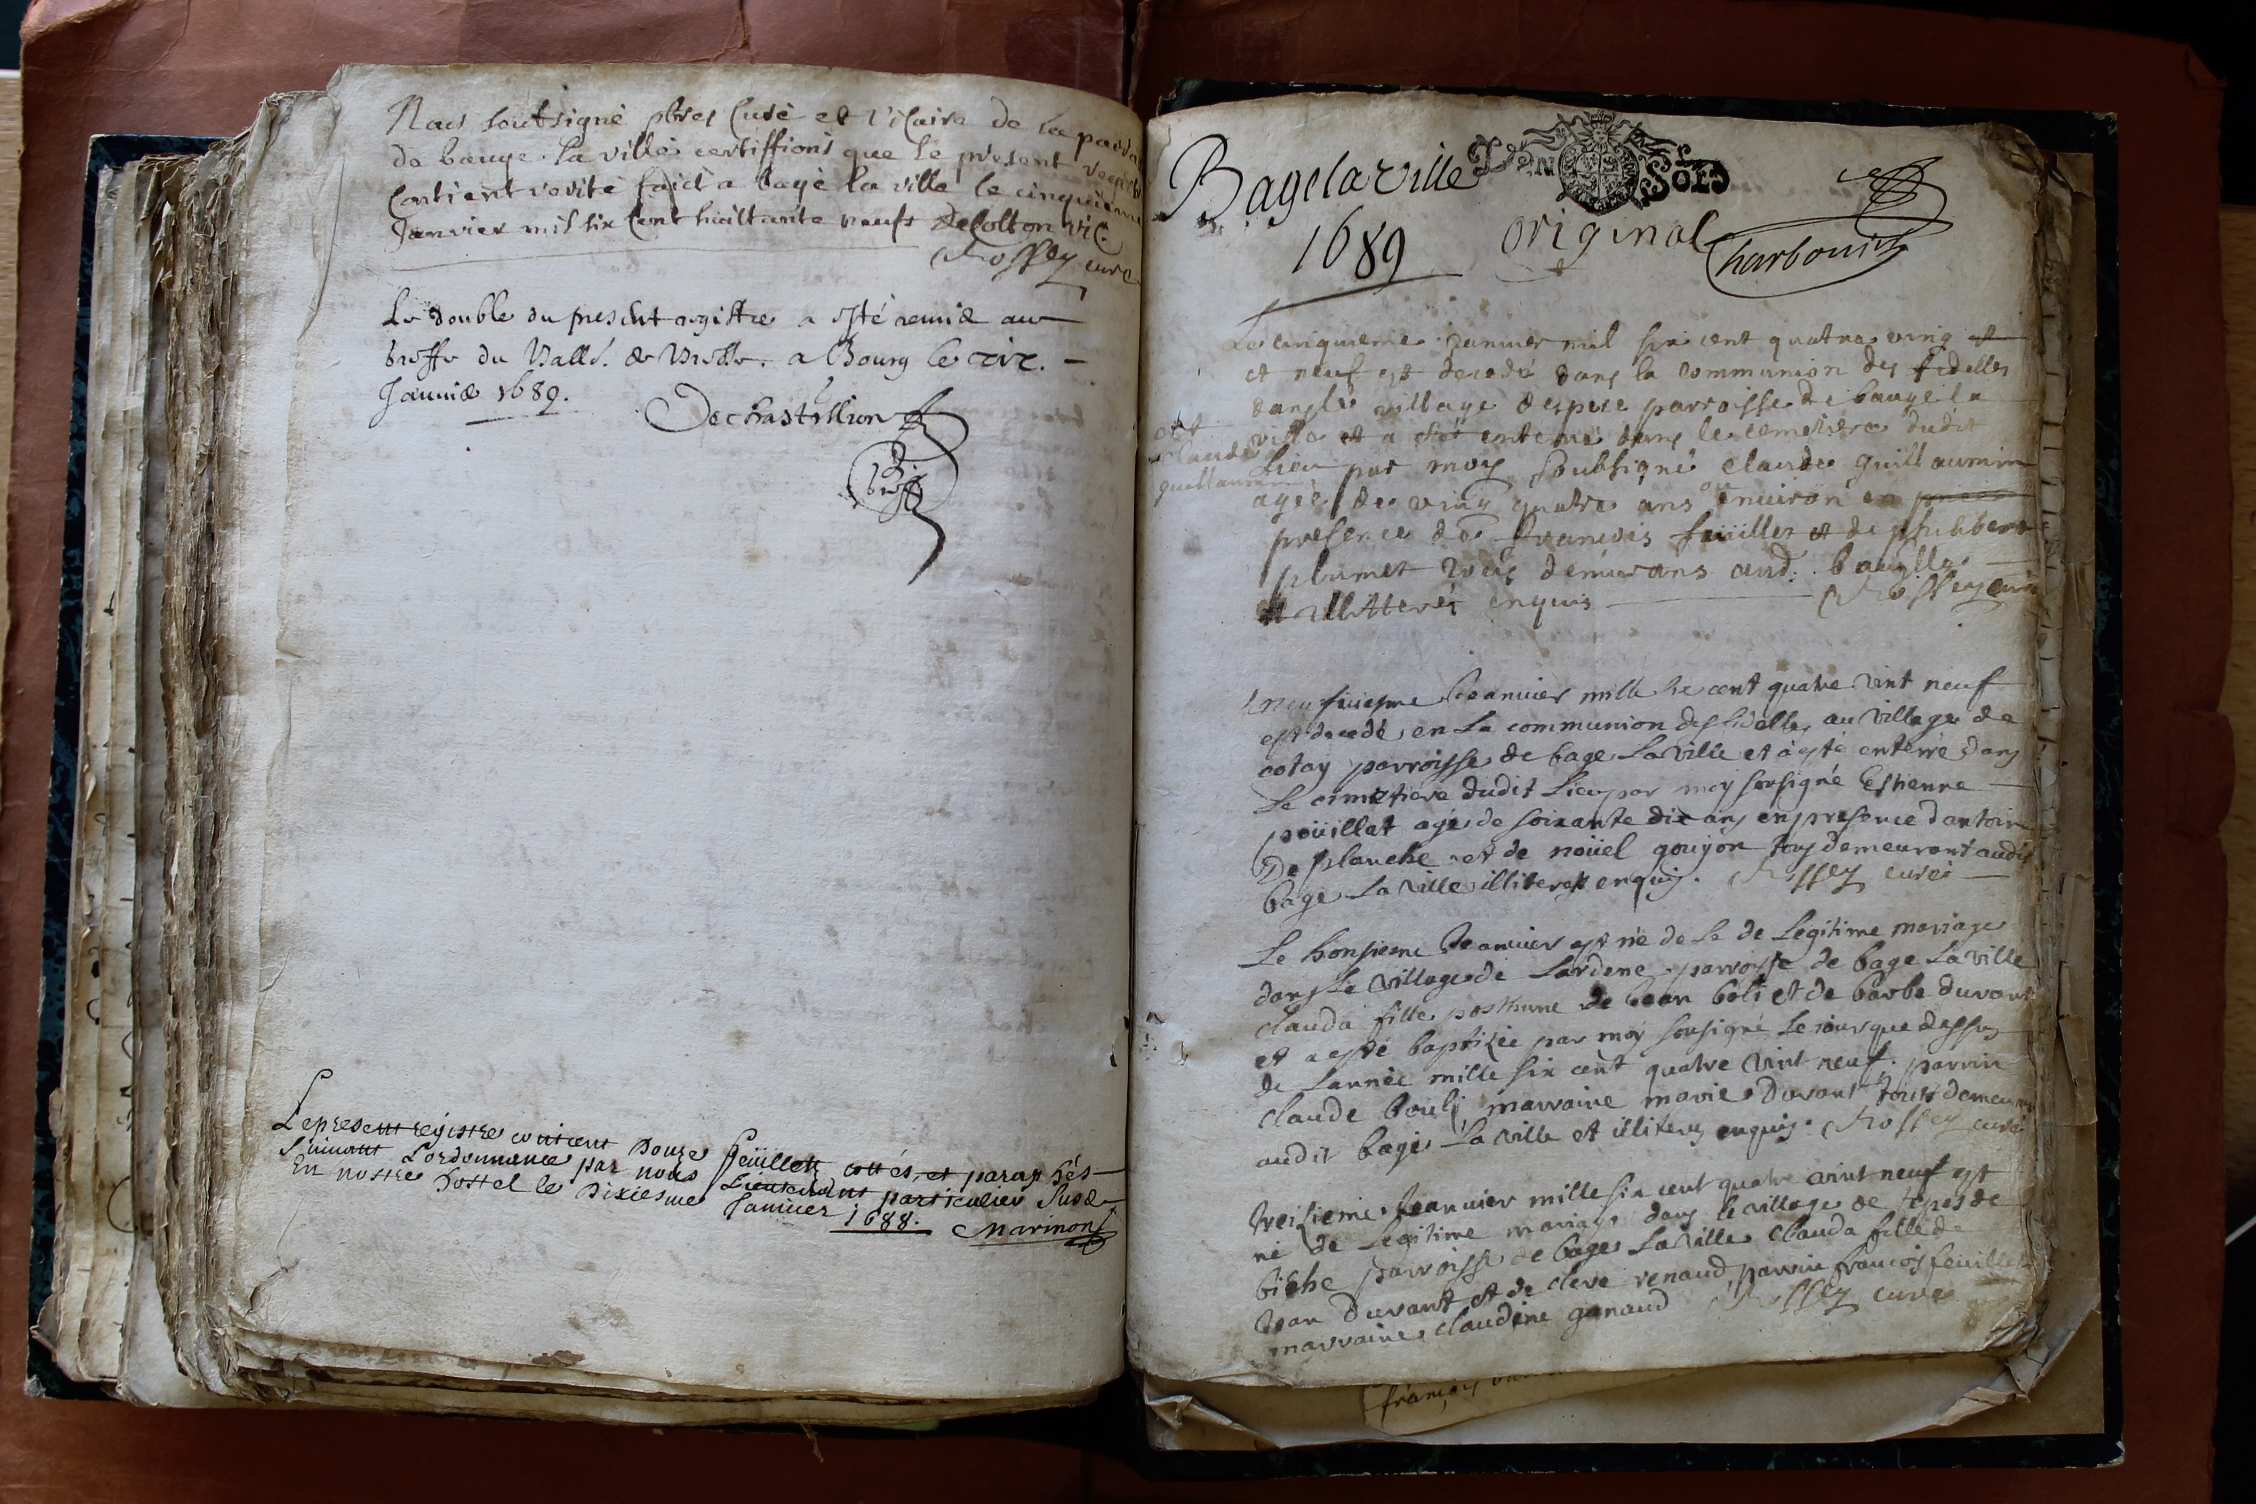 Nous soutsigné pbres Curé et Vicaire de la parr
de bauge la ville certiffions que le present
Contient verité faict a bagé la ville le cinquieme
Janvier mil six Cent huictante neufs Decolton vic.
Rossey curé
Le double du present registre a esté remis au
Greffe du Ball. de Bresse. a Bourg le xix.
Janvié 1689.
Dechastillion
Le present registre contient Douze feüillets cottés, et paraphés
Suivant L'ordonnance par nous Lieutenant particulier
En nostre hostel le Dixiesme Janvier 1688.
Marinon
Bagelaville DEN SOLS
1689 original
Charbouis
Le cinquieme janvier mil six cent quatre ving et
et neuf est decedé dans la communion des fidelles
dans le village despere parroisse de baugé la
ville et a esté enterré dans le cemetiere dudit
Claude
guillaumin
Lieu par moy soubsigné claude guillaumin
agée de ving quatre ans ou environ en
presence de francois feüillet et de philibert
plumet tous demurans aud. baugella
et illitterés enquis Rossey curé
neufviesme Jeanvier mille six cent quatre vint neuf
est decedé en La communion des fidelles au village de
cotay parroisse de bage La ville et à esté enterré dans
Le cimetiere dudit Lieu par moy sousigné Estienne
poüillat agé de soixante dix ans en presence dantoine
De planche et de noüel goujon tous demeurant audit
bage La ville illiteres enquis. Rossey curé
Le honsieme Jeanvier est né de Le de Legitime mariage
dans Le village de Lardene parroisse de bage La ville
clauda fille posthume de Jean boli et de barbe durant
et a esté baptizée par moy sousigné le iour que dessus
de Lannée mille six cent quatre vint neuf. parrin
claude bouli marraine marie Durant tous
audit bage La ville et illiteres enquis. Rossey curé
treizieme Jeanvier mille six cent quatre vint neuf est
né de Legitime mariage dans le village de tepes de
biche parroisse de bage La ville clauda fille de
Jean Durant et de clere renaud, parrin francois feuillet
marraine claudine genaud Rossey curé
françois